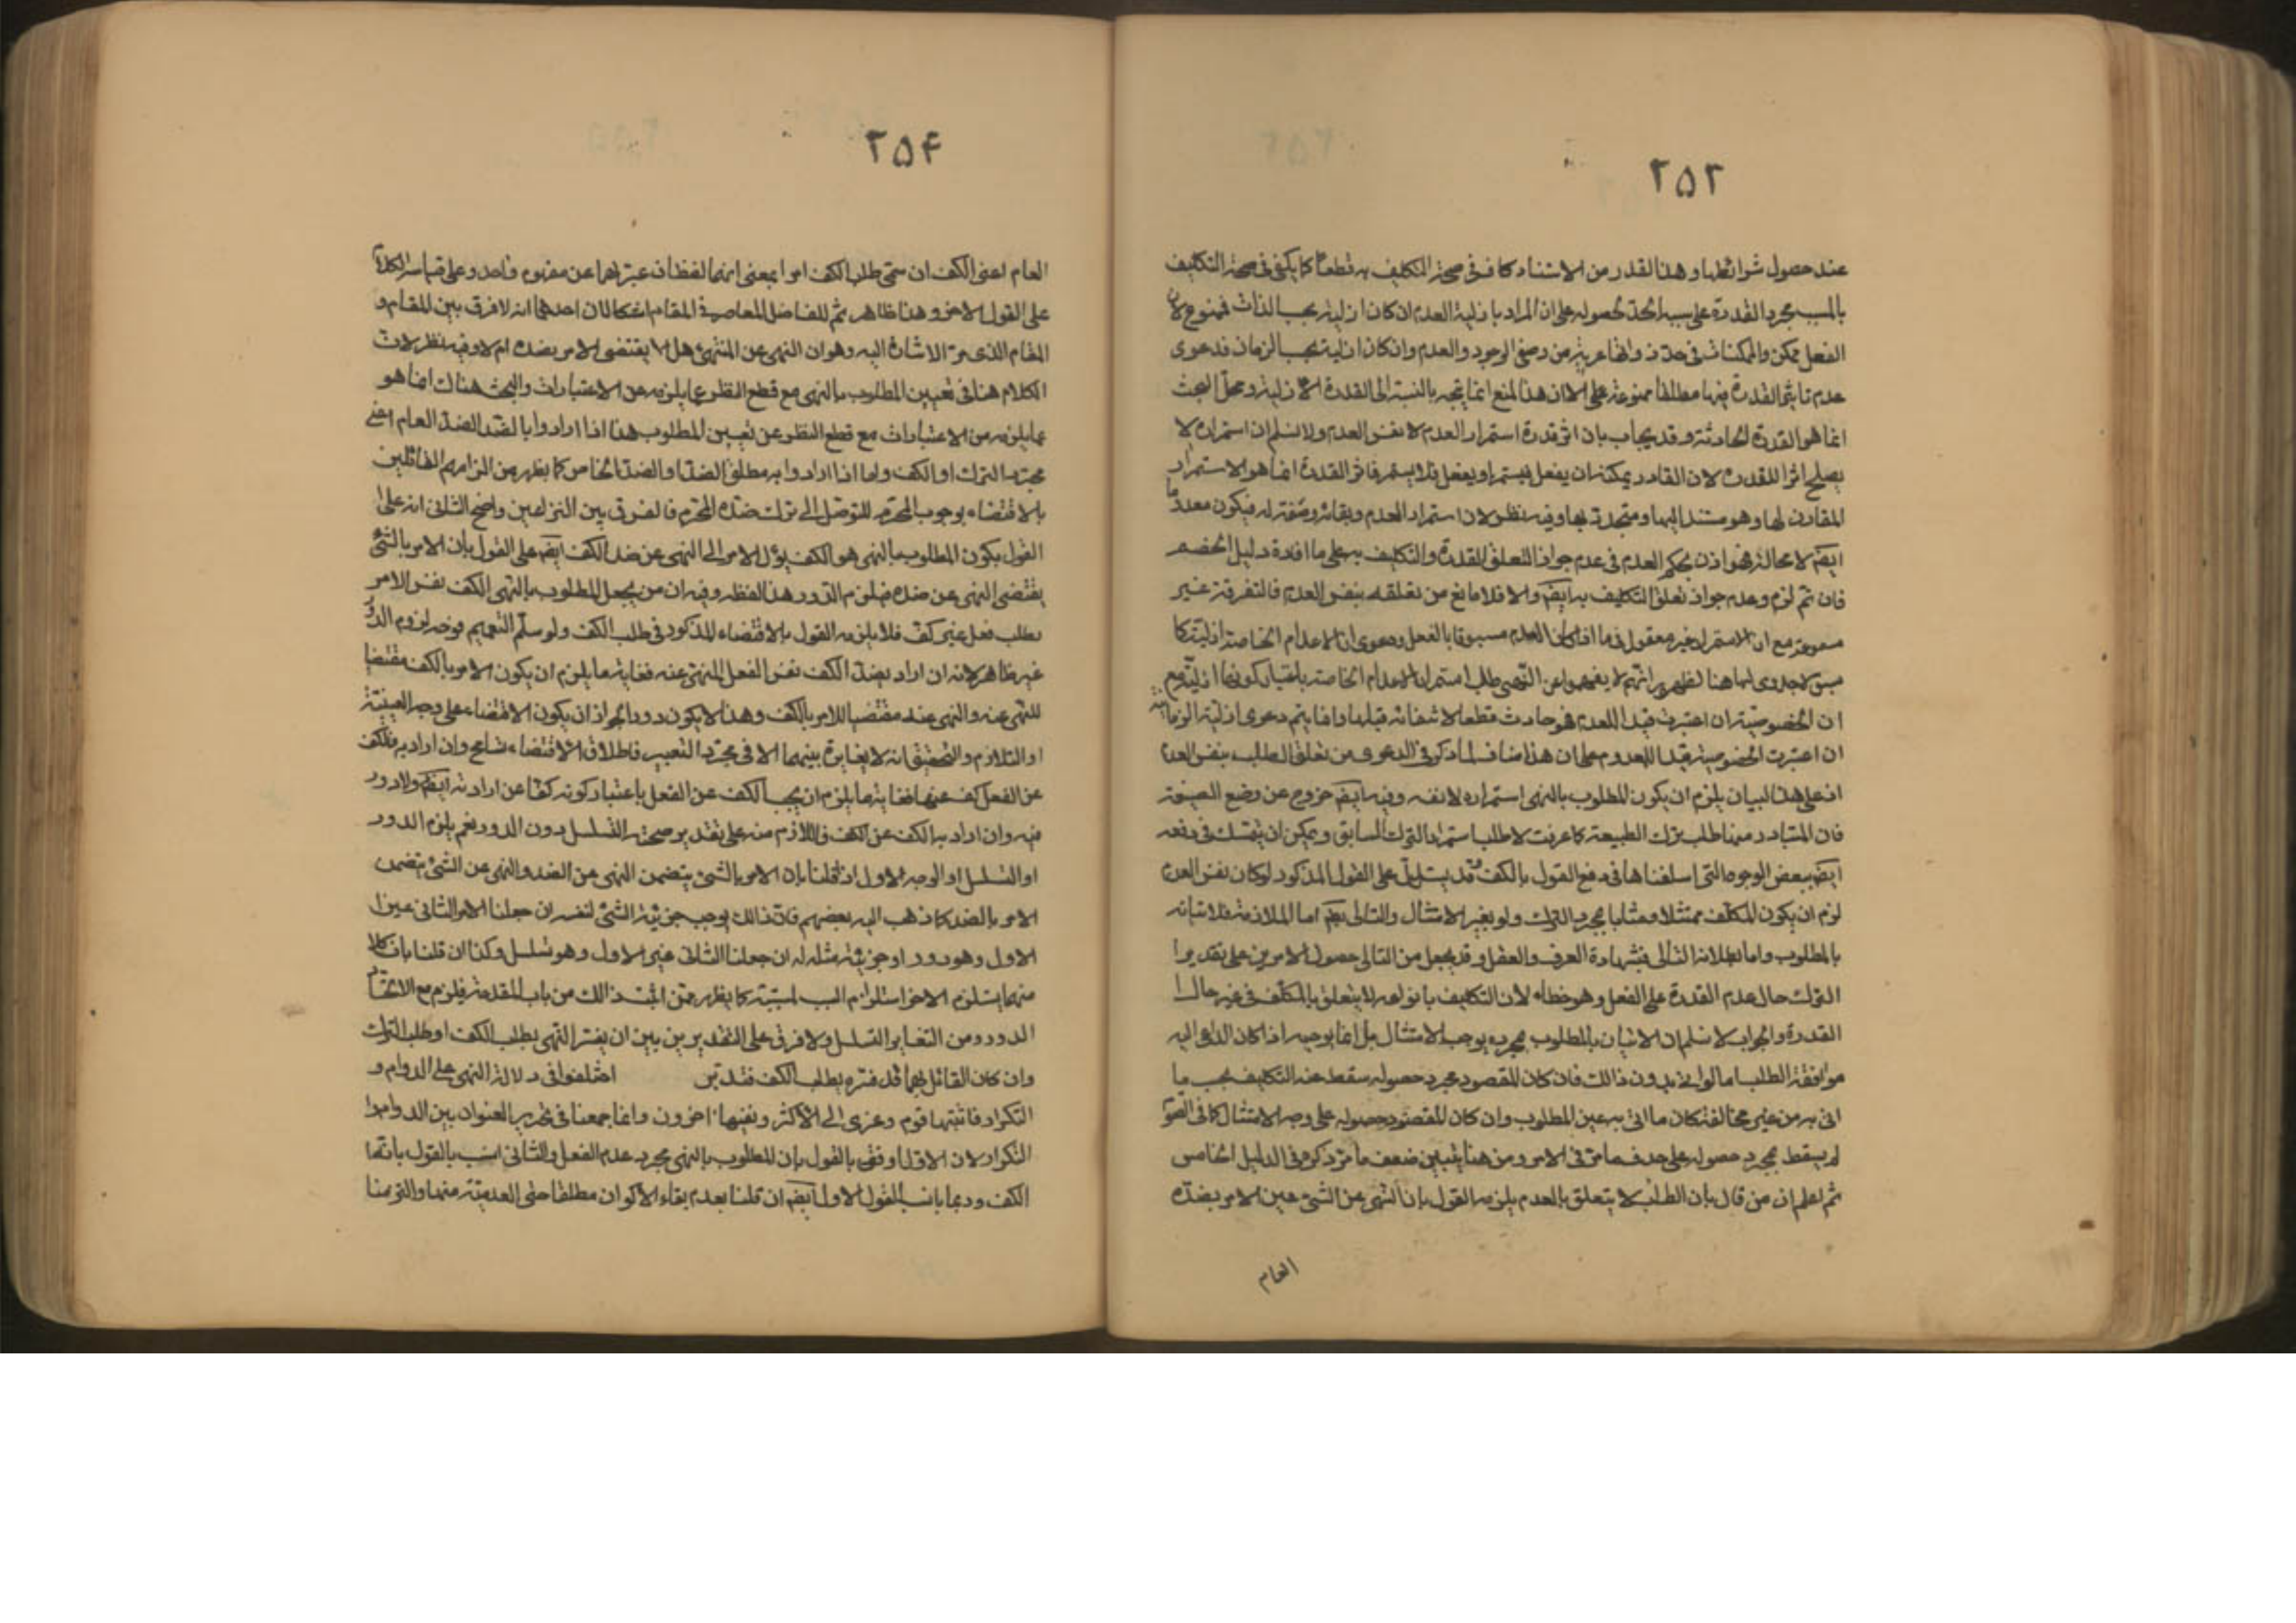 ۲۵۳
عند حصول شرائطها وهذا القدر من الاستناد كاف فى صحة التكليف به قطعا كما يكفى فى صحة التكليف
بالمسبب مجرد القدرة على سببه المحصوله على ان المراد بازلية العدم ان كان ازليته بحسب الذات فممنوع لان
الفعل ممكن والممكنات فى حد ذواتها عرية من وصفى الوجود والعدم وان كان ازليته بحسب الزمان فدعوى
عدم تاثير القدرة فيها مطلقا ممنوعة على ان هذا المنع انما يتجه بالنسبة الى القدرة الازلية ومحل البحث
انما هو القدرة الحادثة وقد يجاب بان اثر قدرة استمرار العدم لا نفس العدم ولا نسلم ان استمراره لا
يصلح اثرا للقدرة لان القادر يمكنه ان يفعل فيستمر او يفعل فلا يستمر فاثر القدرة انما هو الاستمرار
المقارن لها وهو مستند اليها ومتجدد بها وفيه نظر لان استمرار العدم وبقائه وصفة له فيكون معدوما
ايضا لا محالة فهو اذن بحكم العدم فى عدم جواز التعلق للقدرة والتكليف به على ما افاده دليل الخصم
فان تم لزم وعدم جواز تعلق التكليف به ايضا والا فلا مانع من تعلقه بنفس العدم فالتفرقة غير
مسموعة مع ان الاستمرار غير معقول فى ما اذا كان العدم مسبوقا بالفعل ودعوى ان الاعدام الخاصة ازلية كما
سبق لا جدوى لها هنا لظهور انهم لا يفهموا من النهى طلب استمرار الاعدام الخاصة باعتبار كونها ازلية مع
ان الخصوصية ان اعتبرت قيدا للعدم فهو حادث قطعا لانتفائه قبلها وانما يتم دعوى ازلية الزمانية
ان اعتبرت الخصوصية قيدا للمعدوم على ان هذا مناف لما ذكر فى الدعوى من تعلق الطلب بنفس العدم
اذ على هذا البيان يلزم ان يكون المطلوب بالنهى استمراره لا نفسه وفيه ايضا خروج عن وضع الصيغة
فان المتبادر منها طلب ترك الطبيعة كما عرفت لا طلب استمرار الترك السابق ويمكن ان يتمسك فى دفعه
ايضا ببعض الوجوه التى اسلفناها فى دفع القول بالكف وقد يستدل على القول المذكور لو كان نفس العدم
لزم ان يكون المكلف ممتثلا ومثابا بمجرد الترك ولو بغير الامتثال والتالى بط اما الملازمة فلاتيانه
بالمطلوب واما بطلان التالى فبشهادة العرف والعقل وقد يجعل من التالى حصول الامرين على تقدير
الترك حال عدم القدرة على الفعل وهو خطاء لان التكليف بانواعه لا يتعلق بالمكلف فى غير حال
القدرة والجواب لا نسلم ان الاتيان بالمطلوب بمجرده يوجب الامتثال بل انما يوجبه اذا كان الداعى اليه
موافقة الطلب اما لو اتى بدون ذلك فان كان المقصود مجرد حصوله سقط عنه التكليف بحسب ما
اتى به من غير مخالفة كان ما اتى به عين المطلوب وان كان المقصود حصوله على وجه الامتثال كما فى الصوم
لم يسقط بمجرد حصوله على حد ما مر فى الامر ومن هنا يتبين ضعف ما مر ذكره فى الدليل الخامس
ثم اعلم ان من قال بان الطلب لا يتعلق بالعدم يلزمه القول بان النهى عن الشئ عين الامر بضده
العام
۲۵۴
العام اعنى الكف ان سمى طلب الكف امرا بمعنى انهما لفظان عبر بهما عن مفهوم واحد وعلى قياسه الكلام
على القول الاخر وهذا ظاهر ثم للفاضل المعاصر فى المقام اشكالان احدهما انه لا فرق بين المقام و
المقام الذى مر الاشارة اليه وهو ان النهى عن الشئ هل يقتضى الامر بضده ام لا وفيه نظر لان
الكلام هنا فى تعيين المطلوب بالنهى مع قطع النظر عما يلزمه من الاعتبارات والبحث هناك انما هو
عما يلزمه من الاعتبارات مع قطع النظر عن تعيين المطلوب هذا اذا ارادوا بالضد الضد العام اعنى
مجرد الترك او الكف واما اذا ارادوا به مطلق الضد او الضد الخاص كما يظهر من الزامهم القائلين
بالاقتضاء بوجوب المحرم للتوصل الى ترك ضده المحرم فالفرق بين النزاعين واضح الثانى انه على
القول بكون المطلوب بالنهى هو الكف يؤل الامر الى النهى عن ضد الكف ايضا على القول بان الامر بالشئ
يقتضى النهى عن ضده فيلزم الدور هذا لفظه وفيه ان من يجعل المطلوب بالنهى الكف نفس الامر
بطلب فعل غير كف فلا يلزمه القول بالاقتضاء المذكور فى طلب الكف ولو سلم التعميم فوجه لزوم الدور
غير ظاهر لانه ان اراد بضد الكف نفس الفعل المنهى عنه فغاية ما يلزم ان يكون الامر بالكف مقتضيا
للنهى عنه والنهى عنه مقتضيا للامر بالكف وهذا لا يكون دورا لجواز ان يكون الاقتضاء على وجه العينية
او التلازم والتحقيق انه لا يغايرة بينهما الا فى مجرد التعبير فاطلاق الاقتضاء تسامح وان اراد به فالكف
عن الفعل كف عنها فغاية ما يلزم ان يجب الكف عن الفعل باعتبار كونه كفا عن ارادته ايضا ولا دور
فيه وان اراد به الكف عن الكف فاللازم منه على تقدير صحته التسلسل دون الدور نعم يلزم الدور
او التسلسل او الوجه الاول اذا قلنا بان الامر بالشئ يتضمن النهى عن الضد والنهى عن الشئ يتضمن
الامر بالضد كما ذهب اليه بعضهم فان ذلك يوجب جزئية الشئ لنفسه ان جعلنا الامر الثانى عين
الاول وهو دور او جزئية مثله له ان جعلنا الثانى غير الاول وهو تسلسل وكذا ان قلنا بان كلا
منهما يستلزم الاخر استلزام السبب لمسببه كما يظهر ممن اثبت ذلك من باب المقدمة فيلزم مع الاتحاد
الدور ومن التغاير التسلسل ولا فرق على التقديرين بين ان يفسر النهى بطلب الكف او طلب الترك
وان كان القائل بهما قد فسره بطلب الكف فتدبر اختلفوا فى دلالة النهى على الدوام و
التكرار فاثبتها قوم وعزى الى الاكثر ونفيها اخرون وانما جمعنا فى تحرير العنوان بين الدوام و
التكرار لان الاول اوفق بالقول بان المطلوب بالنهى مجرد عدم الفعل والثانى انسب بالقول بانه
الكف وربما يناسب القول الاول ايضا ان قلنا بعدم بقاء الاكوان مطلقا حتى العدمية منها والتزمنا